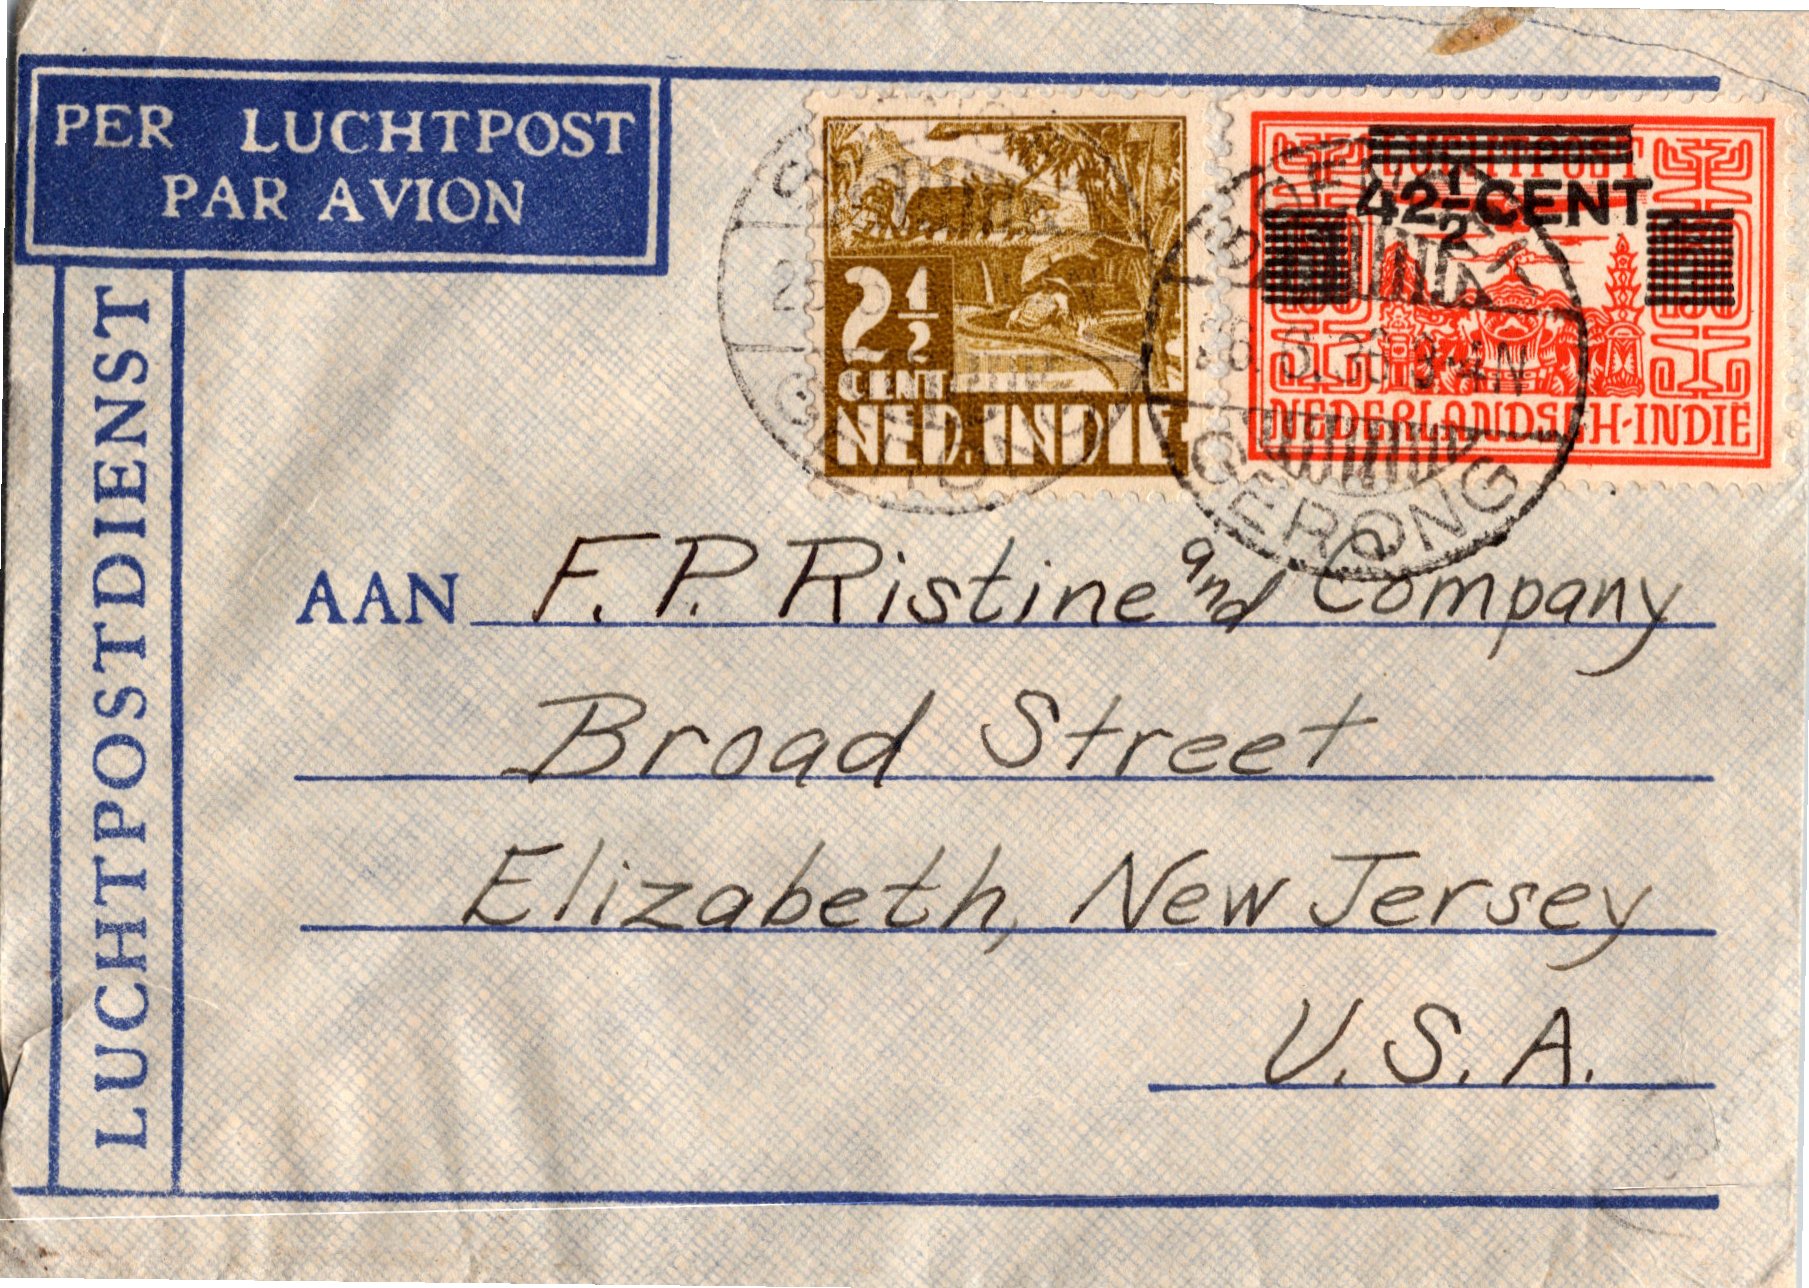 PER LUCHTPOST
PAR AVION
LUCHTPOSTDIENST
2 1/2
CENT
NED. INDIE
LUCHTPOST
42 1/2 CENT
NEDERLANDSCH-INDIE
3-4 N
GERONG
AAN F. P. Ristine and Company
Broad Street
Elizabeth, New Jersey
U.S.A.